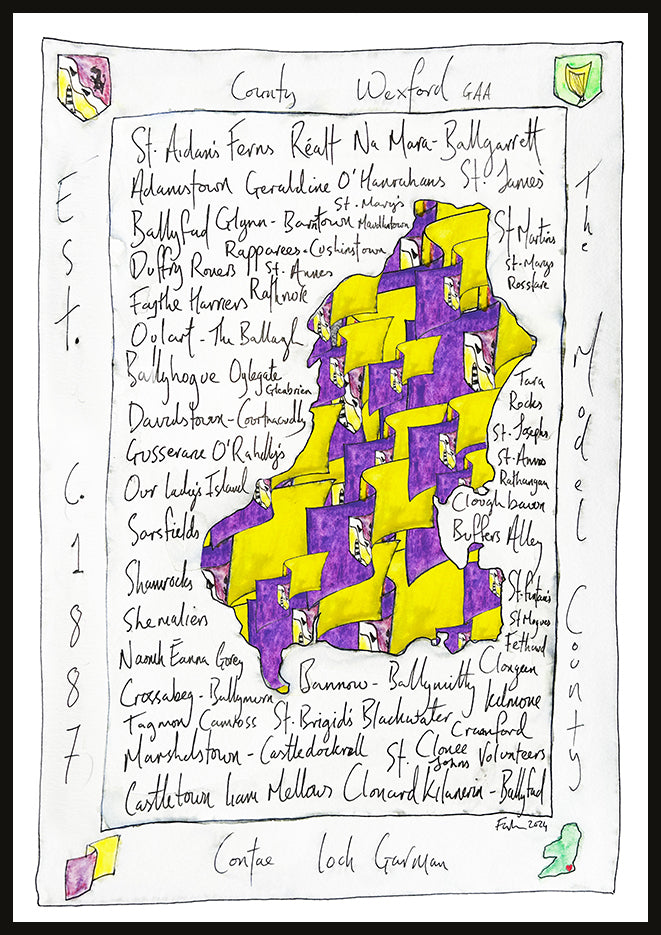 County Wexford GAA
Est. C. 1887
The Model County
St. Aidan's Ferns Réalt Na Mara - Ballygarrett
Adamstown Geraldine O'Hanrahans St. James'
St. Mary's
Maudlintown
Ballyfad Glynn - Barntown
St Martins
Rapparees - Cushinstown
St. Marys
Rosslare
Duffry Rovers St. Annes
Rathnure
Faythe Harriers
Oulart - The Ballagh
Ballyhogue Oylegate
Glenbrien
Tara
Rocks
Davidstown - Courtnacuddy
St. Josephs
Gusserane O'Rahillys
St. Annes
Rathangan
Our Lady's Island
Cloughbawn
Sarsfields
Buffers Alley
Shamrocks
St. Fintan's
Shemaliers
St Mogues
Fethard
Naomh Éanna Gorey
Clongeen
Bannow - Ballymitty
Crossabeg - Ballymurn
Kilmore
Tagmon Camross St. Brigid's Blackwater
Crawford
Marshalstown - Castledockrell
St. Johns
Clonee Volunteers
Castletown Liam Mellows Clonard Kilanerin - Ballyfad
2024
Contae Loch Garman